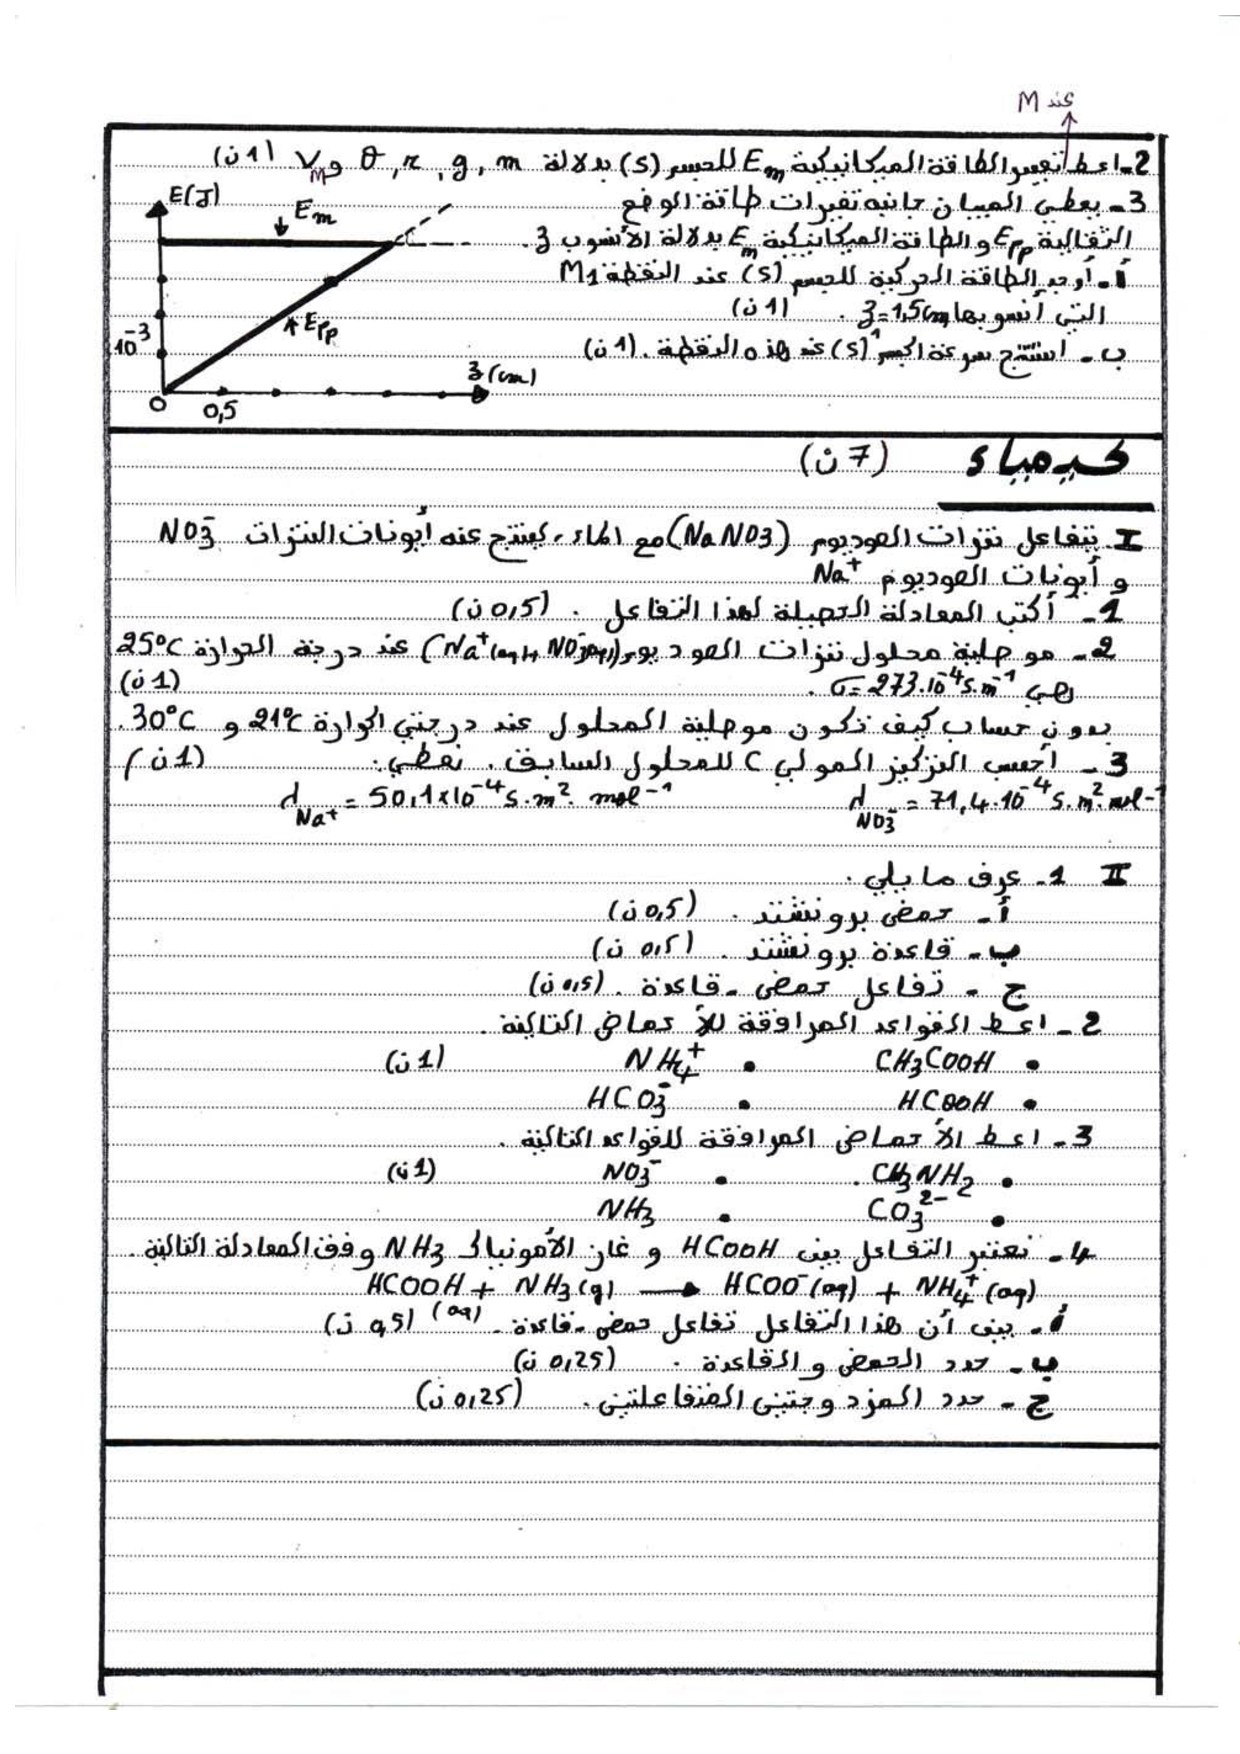 عند M
2- اعط تعبير الطاقة الميكانيكية Em للجسم (S) بدلالة m , g , r , θ و VM (1ن)
3- يعطي المبيان جانبه تغيرات طاقة الوضع
الثقالية Epp والطاقة الميكانيكية Em بدلالة الأنسوب z.
أ- أوجد الطاقة الحركية للجسم (S) عند النقطة M1
التي أنسوبها z1=1,5cm . (1ن)
ب- استنتج سرعة الجسم (S) عند هذه النقطة. (1ن)
E(J)
Em
Epp
10^-3
0
0,5
z(cm)
كيمياء (7ن)
I- يتفاعل نترات الصوديوم (NaNO3) مع الماء، فينتج عنه أيونات النترات NO3-
و أيونات الصوديوم Na+
1- أكتب المعادلة الحصيلة لهذا التفاعل. (0,5ن)
2- موصلية محلول نترات الصوديوم (Na+(aq)+NO3-(aq)) عند درجة الحرارة 25°C
هي σ=273.10^-4 S.m^-1 . (1ن)
بدون حساب كيف تكون موصلية المحلول عند درجتي الحرارة 21°C و 30°C.
3- أحسب التركيز المولي C للمحلول السابق. نعطي: (1ن)
λNO3- = 71,4.10^-4 S.m².mol^-1 λNa+ = 50,1×10^-4 S.m².mol^-1
II 1- عرف ما يلي.
أ- حمض برونشتد. (0,5ن)
ب- قاعدة برونشتد. (0,5ن)
ج- تفاعل حمض-قاعدة. (0,5ن)
2- اعط القواعد المرافقة للأحماض التالية.
• CH3COOH • NH4+ (1ن)
• HCOOH • HCO3-
3- اعط الأحماض المرافقة للقواعد التالية.
• CH3NH2 • NO3- (1ن)
• CO3^2- • NH3
4- نعتبر التفاعل بين HCOOH و غاز الأمونياك NH3 وفق المعادلة التالية.
HCOOH + NH3(g) → HCOO-(aq) + NH4+(aq)
(aq)
أ- بين أن هذا التفاعل تفاعل حمض-قاعدة. (0,5ن)
ب- حدد الحمض و القاعدة. (0,25ن)
ج- حدد المزدوجتين المتفاعلتين. (0,25ن)